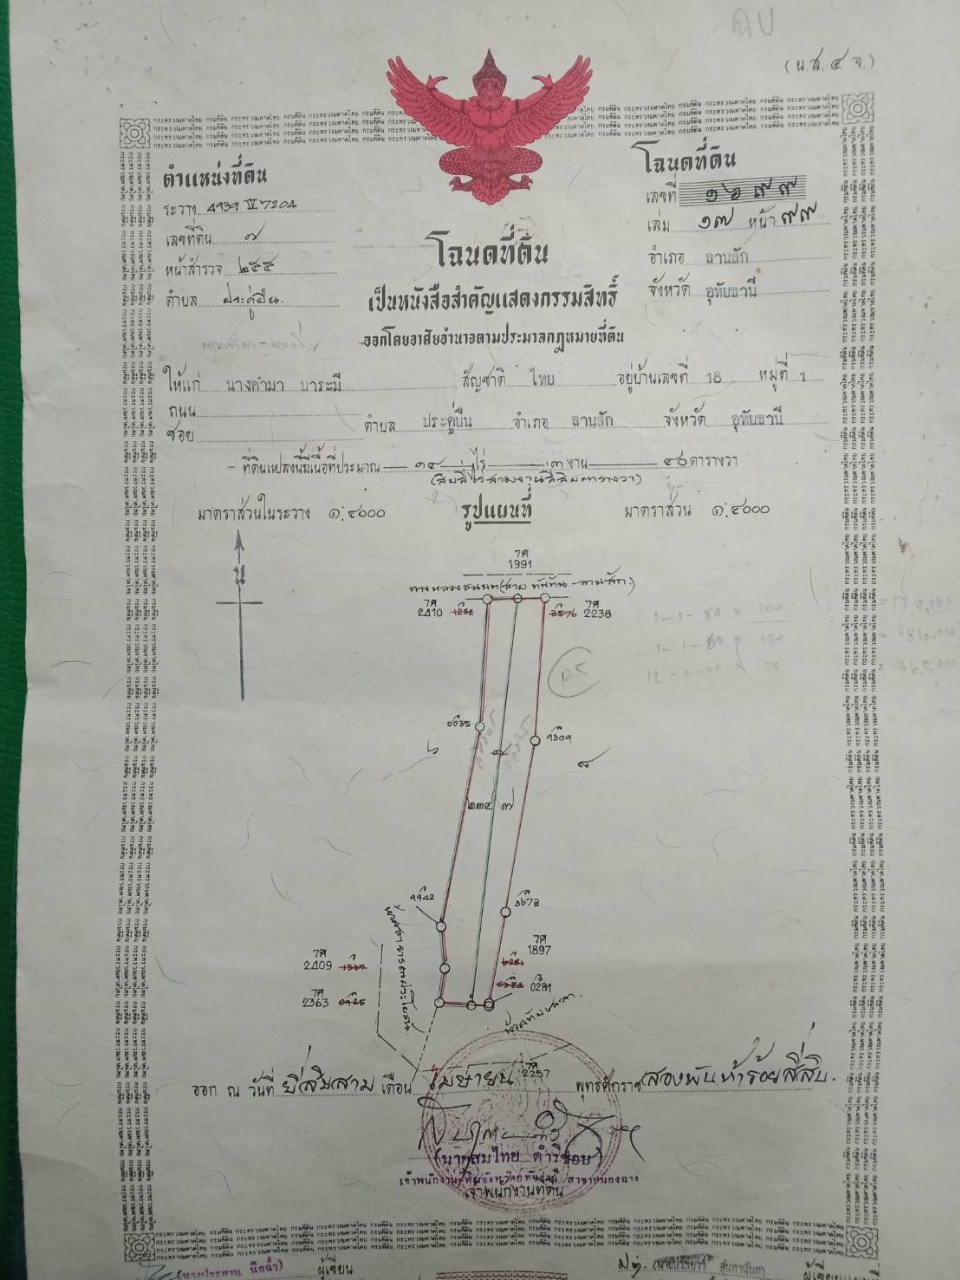 (น.ส. ๔ จ.)
ตำแหน่งที่ดิน
ระวาง 4939 IV 7204
เลขที่ดิน ๗
หน้าสำรวจ ๒๕๕
ตำบล ประดู่ยืน
โฉนดที่ดิน
เลขที่ ๑๖๙๙
เล่ม ๑๗ หน้า ๙๙
อำเภอ ลานสัก
จังหวัด อุทัยธานี
โฉนดที่ดิน
เป็นหนังสือสำคัญแสดงกรรมสิทธิ์
ออกโดยอาศัยอำนาจตามประมวลกฎหมายที่ดิน
ให้แก่ นางคำมา บาระมี สัญชาติ ไทย อยู่บ้านเลขที่ 18 หมู่ที่ 1
ถนน
ซอย ตำบล ประดู่ยืน อำเภอ ลานสัก จังหวัด อุทัยธานี
ที่ดินแปลงนี้มีเนื้อที่ประมาณ ๑๔ ไร่ ๓ งาน ๔๐ ตารางวา
(สิบสี่ไร่สามงานสี่สิบตารางวา)
มาตราส่วนในระวาง ๑:๔๐๐๐ รูปแผนที่ มาตราส่วน ๑:๔๐๐๐
น
7ค
1991
ทางหลวงชนบท(สาย ทัพทัน-ลานสัก)
7ค
2410
7ค
2238
3576
6035
9309
๖
๘
๒๓๕ ๗
9942
3673
7ค
2409
7ค
1897
7ค
2363
0291
ห้วยทับเสลา
7ค
2257
ออก ณ วันที่ ยี่สิบสาม เดือน เมษายน พุทธศักราช สองพันห้าร้อยสี่สิบ.
(นายสมไทย ดำริชอบ)
เจ้าพนักงานที่ดินจังหวัดอุทัยธานี สาขาหนองฉาง
เจ้าพนักงานที่ดิน
ผู้เขียน